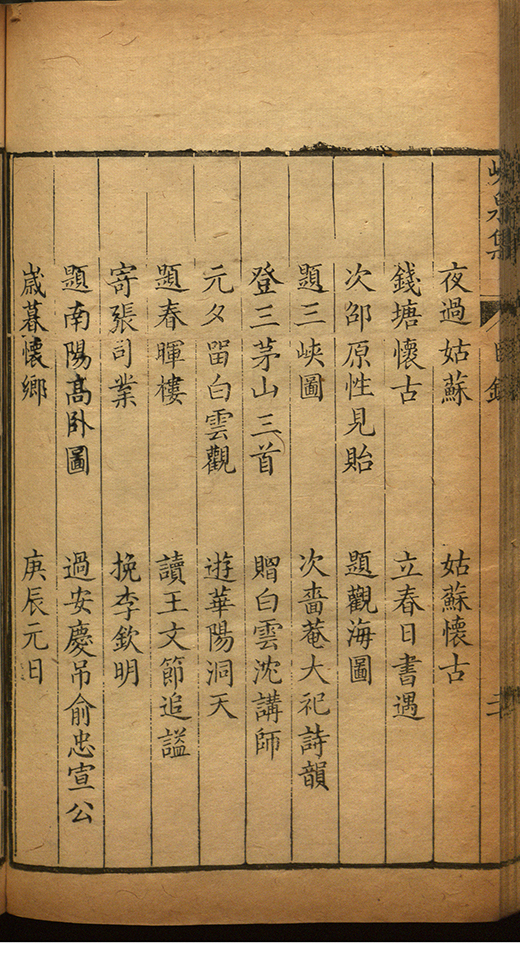 峴泉集
目錄
二
夜過姑蘇 姑蘇懷古
錢塘懷古 立春日書遇
次邵原性見貽 題觀海圖
題三峽圖 次嗇菴大祀詩韻
登三茅山三首 贈白雲沈講師
元夕留白雲觀 遊華陽洞天
題春暉樓 讀王文節追謚
寄張司業 挽李欽明
題南陽高卧圖 過安慶吊俞忠宣公
歲暮懷鄉 庚辰元日